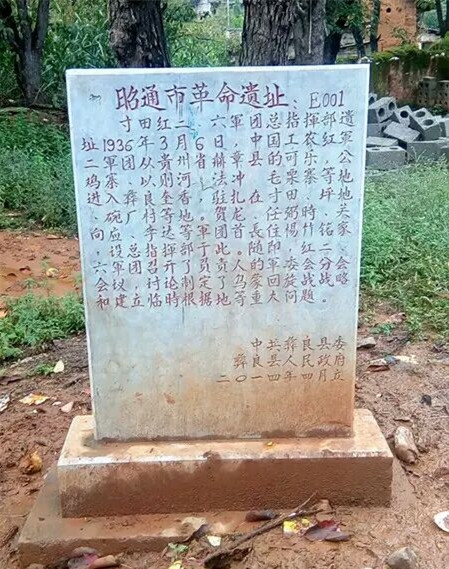 昭通市革命遗址：E001
寸田红二、六軍团总指挥部遗
址 1936年3月6日，中国工农红軍
二軍团从贵州省赫章县的可乐、公
寨、以则河、法冲、毛栗寨等地
进入彝良奎香，驻扎在寸田、坪地
碗厂等地。贺龙、任弼時、关
向应、李达等軍团首長住杨竹铭家
设总指挥部于此。随即，红二
六軍团召开了人的軍委分会
会议，讨论制定了乌蒙回旋战略
和建立临時根据地等重大问题。
中共彝良县委
彝良县人民政府
二〇一四年四月立